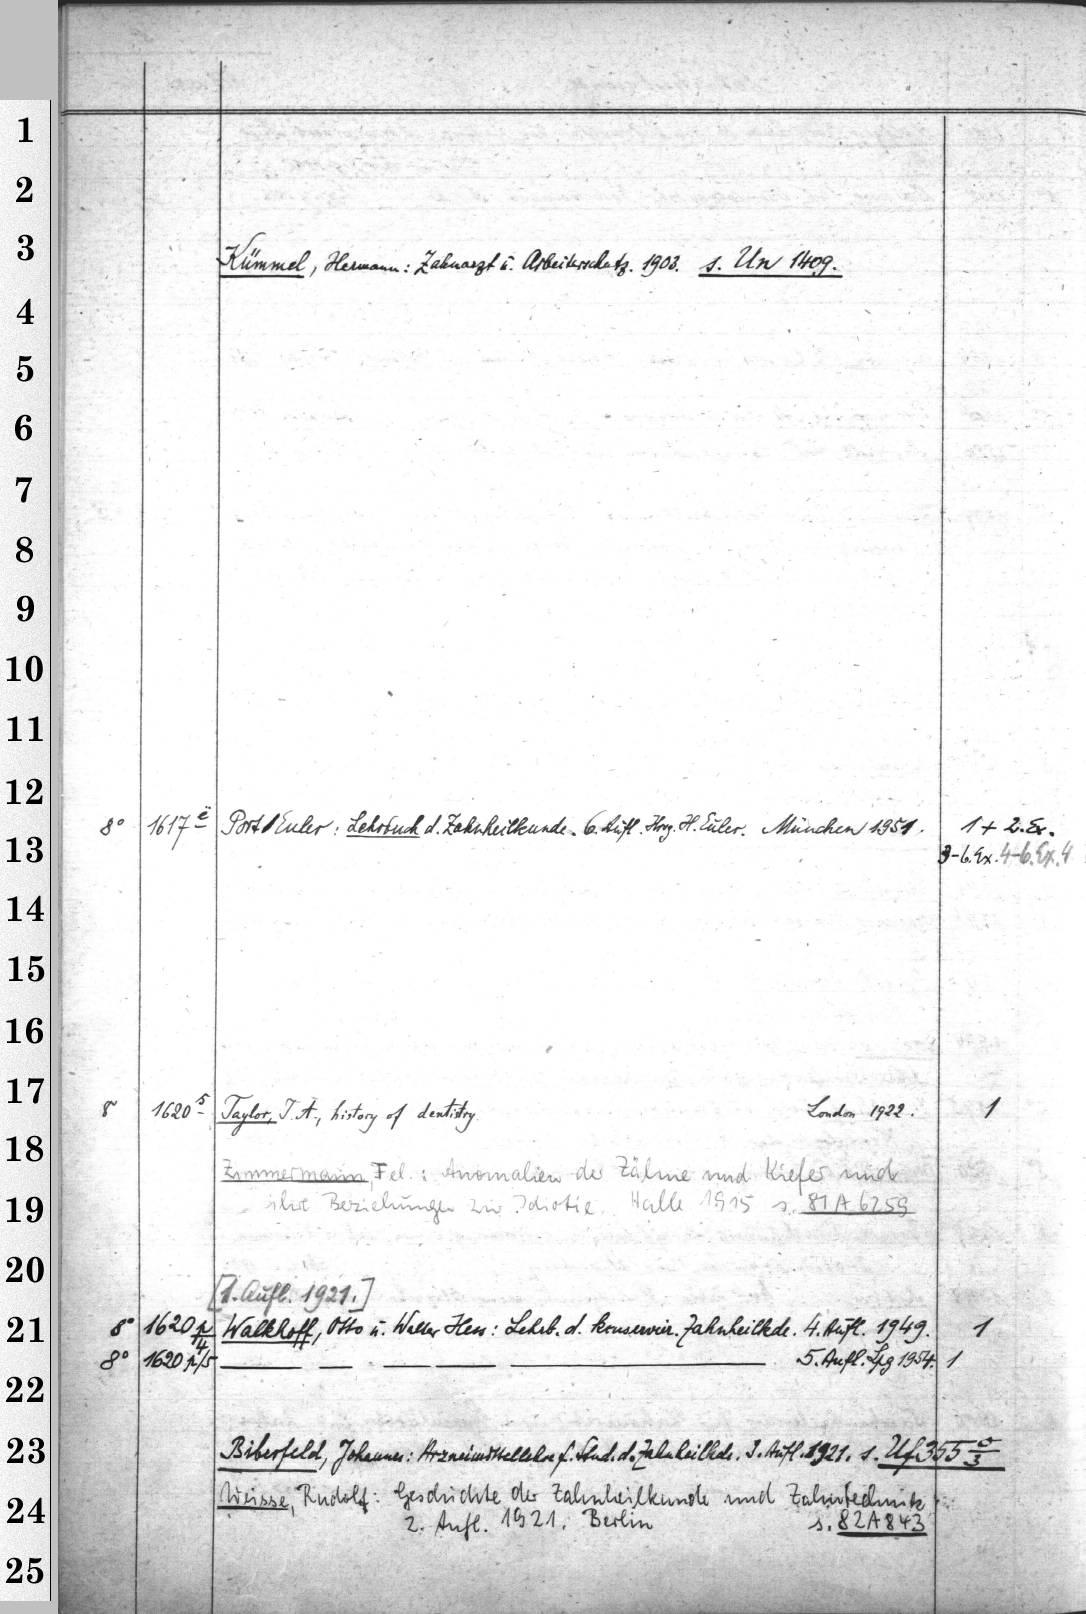 1
2
3
Kümmel, Hermann: Zahnarzt u. Arbeiterschutz. 1903. s. Un 1409.
4
5
6
7
8
9
10
11
12
8° 1617 ë Port/Euler: Lehrbuch d. Zahnheilkunde. 6. Aufl. Hrsg. H. Euler. München 1951. 1 + 2. Ex.
13
3-6. Ex. 4-6. Ex. 4
14
15
16
17
8° 1620 s Taylor, J. A., history of dentistry London 1922. 1
18
Zimmermann, Fel.: Anomalien der Zähne und Kiefer und
19
ihre Beziehungen zur Idiotie. Halle 1915 s. 81 A 6259
20
[1. Aufl. 1921.]
21
8° 1620 p/4 Walkhoff, Otto u. Walter Hess: Lehrb. d. konservier. Zahnheilkde. 4. Aufl. 1949. 1
8° 1620 p/5 — — — — — 5. Aufl. Lpg 1954. 1
22
23
Biberfeld, Johannes: Arzneimittellehre f. Stud. d. Zahnheilkde. 3. Aufl. 1921. s. Uf 355 o/3
24
Weisse, Rudolf: Geschichte der Zahnheilkunde und Zahntechnik
2. Aufl. 1921. Berlin s. 82 A 843
25